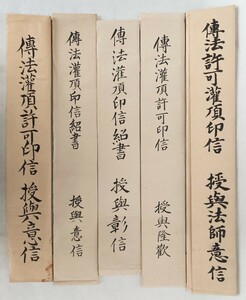 傳法許可灌頂印信 授與法師意信
傳法灌頂許可印信 授與隆歡
傳法灌頂印信紹書 授與彰信
傳法灌頂印信紹書 授與意信
傳法灌頂許可印信 授與意信